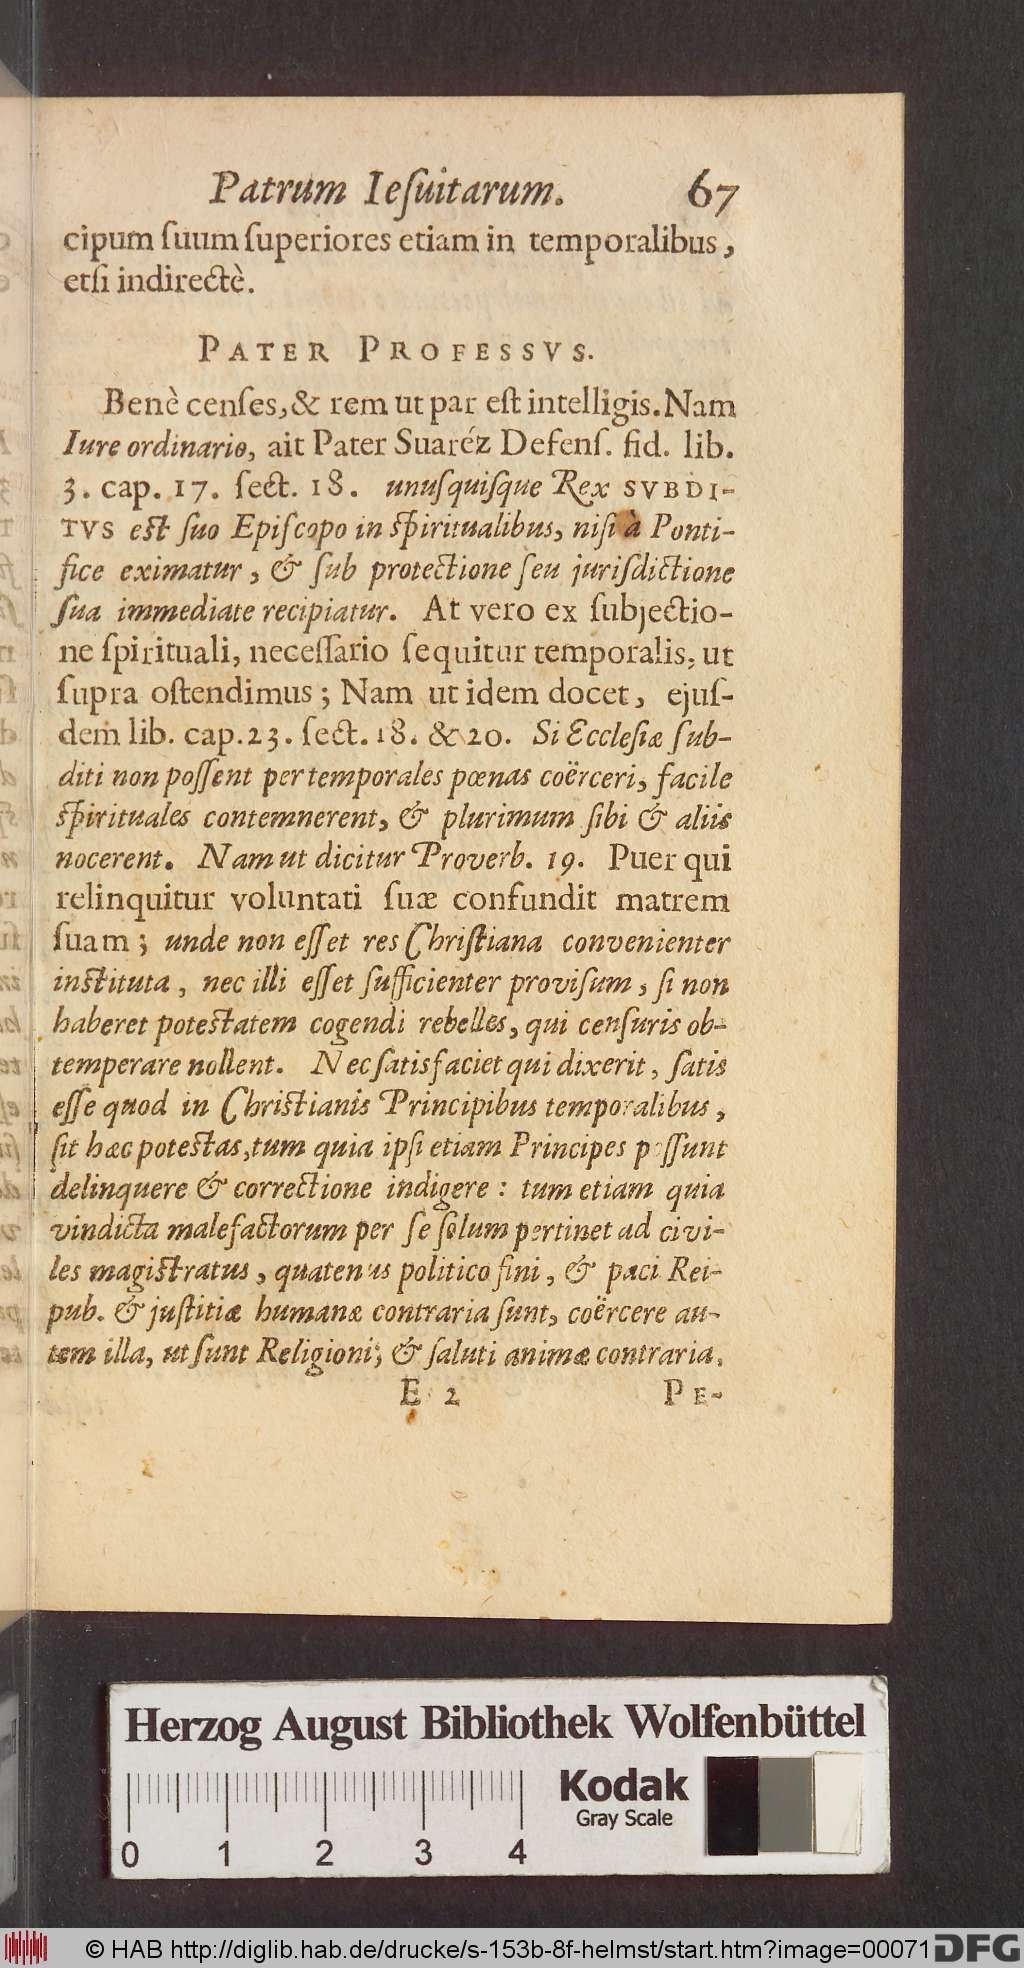 Patrum Ieſuitarum. 67
cipum ſuum ſuperiores etiam in temporalibus,
etſi indirectè.
PATER PROFESSVS.
Benè cenſes, & rem ut par eſt intelligis. Nam
Iure ordinario, ait Pater Suaréz Defenſ. fid. lib.
3. cap. 17. ſect. 18. unuſquiſque Rex SVBDI-
TVS est ſuo Epiſcopo in ſpiritualibus, niſi à Ponti-
fice eximatur, & ſub protectione ſeu jurisdictione
ſua immediate recipiatur. At vero ex ſubjectio-
ne ſpirituali, neceſſario ſequitur temporalis, ut
ſupra oſtendimus; Nam ut idem docet, ejuſ-
dem lib. cap. 23. ſect. 18. & 20. Si Eccleſiæ ſub-
diti non poſſent per temporales pœnas coërceri, facile
ſpirituales contemnerent, & plurimum ſibi & aliis
nocerent. Nam ut dicitur Proverb. 19. Puer qui
relinquitur voluntati ſuæ confundit matrem
ſuam; unde non eſſet res Chriſtiana convenienter
instituta, nec illi eſſet ſufficienter proviſum, ſi non
haberet potestatem cogendi rebelles, qui cenſuris ob-
temperare nollent. Nec ſatisfaciet qui dixerit, ſatis
eſſe quod in Christianis Principibus temporalibus,
ſit hæc potestas, tum quia ipſi etiam Principes poſſunt
delinquere & correctione indigere: tum etiam quia
vindicta malefactorum per ſe ſolum pertinet ad civi-
les magistratus, quatenus politico fini, & paci Rei-
pub. & juſtitiæ humanæ contraria ſunt, coërcere au-
tem illa, ut ſunt Religioni, & ſaluti animæ contraria,
E 2 PE-
Herzog August Bibliothek Wolfenbüttel
Kodak
Gray Scale
0 1 2 3 4
© HAB http://diglib.hab.de/drucke/s-153b-8f-helmst/start.htm?image=00071 DFG